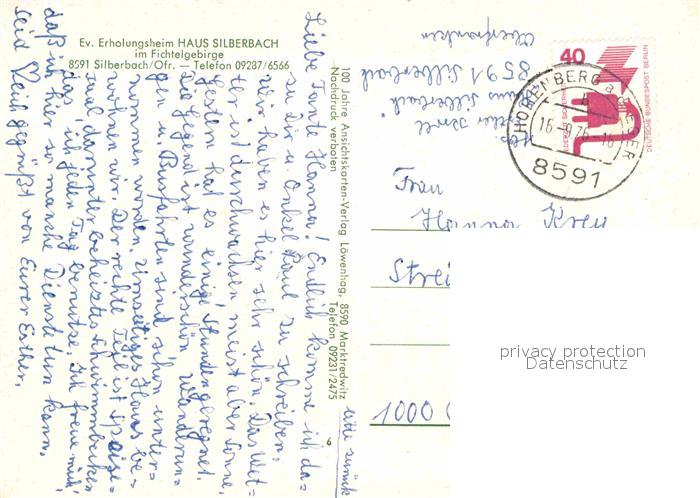 Ev. Erholungsheim HAUS SILBERBACH
im Fichtelgebirge
8591 Silberbach/Ofr. — Telefon 09287/6566
Liebe Tante Hanna! Endlich komme ich da=
zu Dir u. Onkel Paul zu schreiben.
Wir haben es hier sehr schön. Das Wet=
ter ist durchwachsen meist aber Sonne.
Gestern hat es einige Stunden geregnet.
Die Gegend ist wunderschön. Wanderun=
gen u. Busfahrten sind schon unter=
nommen worden. Umseitiges Haus be=
wohnen wir. Der rechte Teil ist Speise=
saal darunter beheiztes Schwimmbecken
das, ich jeden Tag benutze. Ich freue mich,
daß ich hier so manche Dienste tun kann.
Seid Herzl. gegrüßt von Eurer Esther.
100 Jahre Ansichtskarten-Verlag Löwenhag, 8590 Marktredwitz
Nachdruck verboten
Telefon 09231/2475
6
bitte zurück
Haus Silberbach
8591 Silberbach
Oberfranken
40
DEUTSCHE BUNDESPOST BERLIN
HOHENBERG a.d. EGER
16.-9.76-16
8591
Frau
Stre
1000
privacy protection
Datenschutz